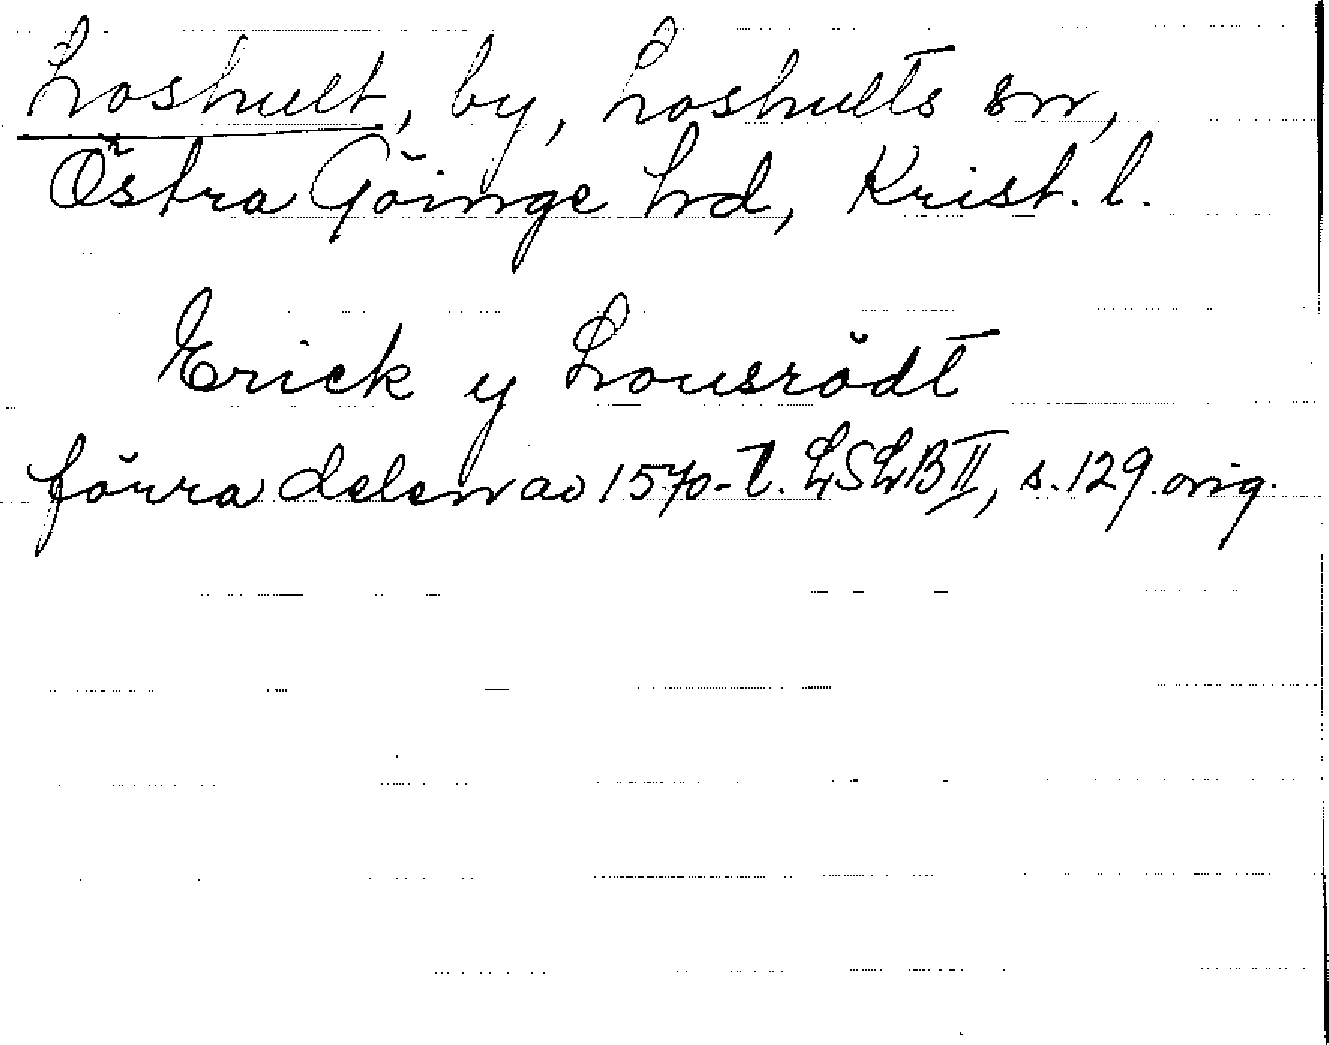 Loshult, by, Loshults sn,
Östra Göinge hd, Krist. l.
Erick y Lousrödt
förra delen av 1570-t. LSLB II, s. 129 orig.